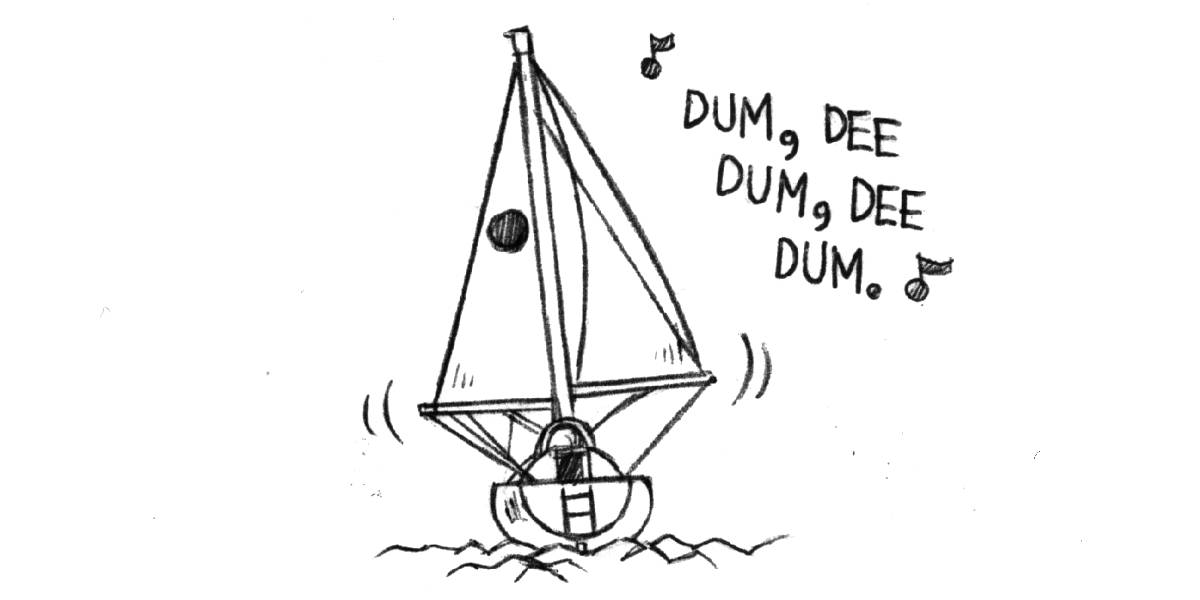 DUM, DEE
DUM, DEE
DUM.